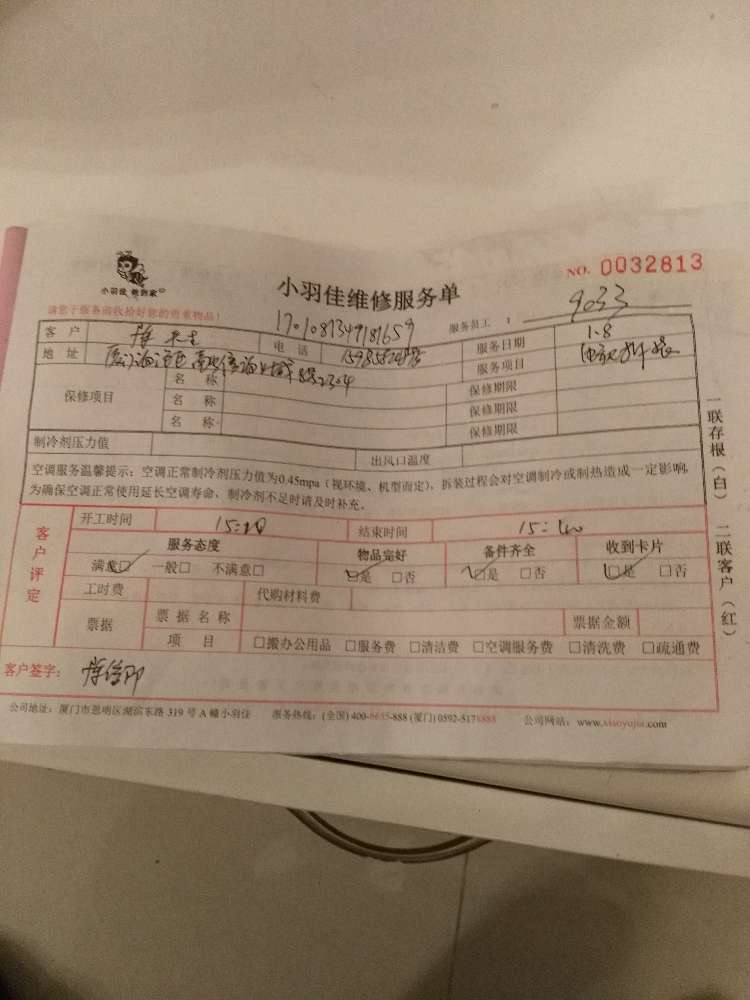 小羽佳 帮到家
小羽佳维修服务单
NO. 0032813
请您于服务前收拾好您的贵重物品!
1701081349181659
服务员工: 9033
客户 电话 服务日期 1.8
地址 服务项目
保修项目 名称 保修期限
名称 保修期限
名称 保修期限
制冷剂压力值 出风口温度
空调服务温馨提示:空调正常制冷剂压力值为0.45mpa(视环境、机型而定),拆装过程会对空调制冷或制热造成一定影响,
为确保空调正常使用延长空调寿命,制冷剂不足时请及时补充。
客户评定
开工时间 结束时间
服务态度 物品完好 备件齐全 收到卡片
满意□ 一般□ 不满意□ □是 □否 □是 □否 □是 □否
工时费 代购材料费
票据 票据名称 票据金额
项目 □搬办公用品 □服务费 □清洁费 □空调服务费 □清洗费 □疏通费
客户签字:
公司地址:厦门市思明区湖滨东路 319 号 A 幢小羽佳 服务热线:(全国) 400-8655-888 (厦门) 0592-5178888 公司网站:www.xiaoyujia.com
一联存根(白) 二联客户(红)